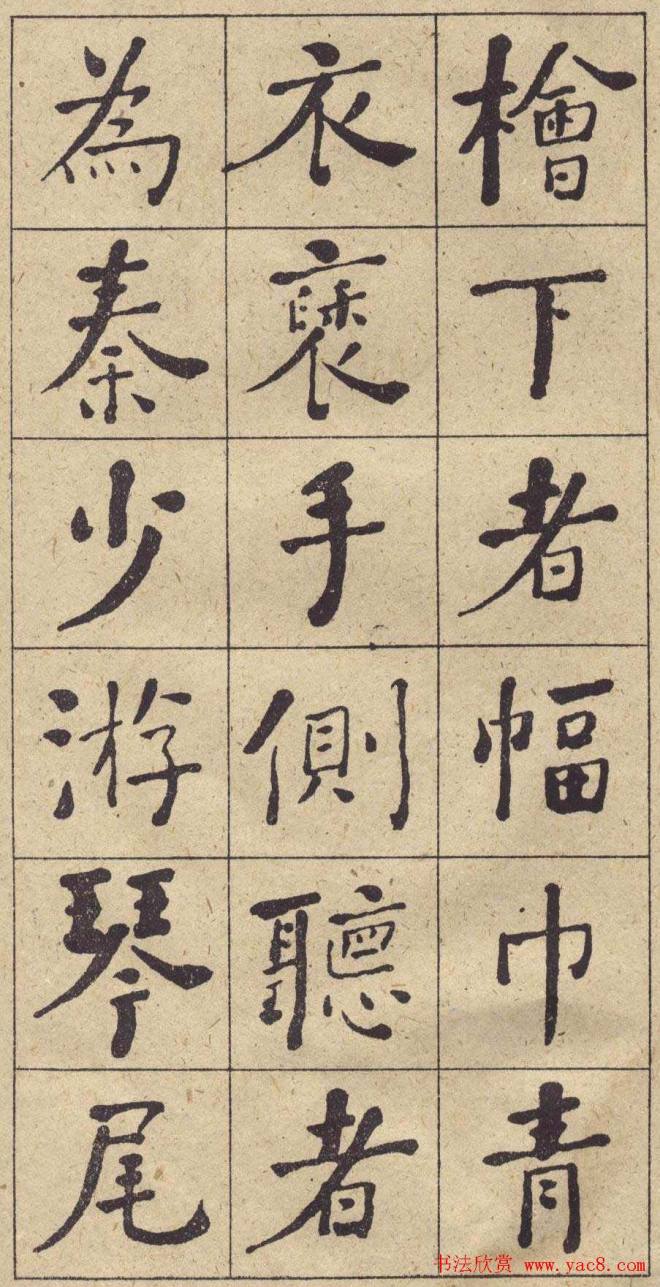 檜下者幅巾青
衣褎手側聽者
為秦少游琴尾
书法欣赏 www.yac8.com